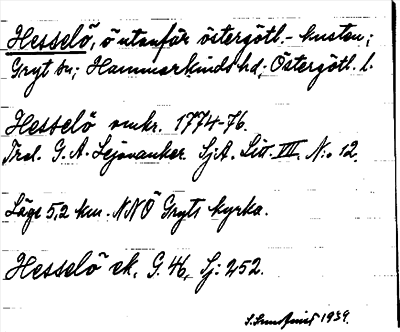 Hesselö, ö utanför östergötl.-kusten;
Gryt sn; Hammarkinds hd; Östergötl. l.
Hesselö omkr. 1774-76.
Trol. G. A. Lejonanker. SjA. Litt. VII. N:o 12.
Läge 5,2 km. NNÖ Gryts kyrka.
Hesselö ek. G. 46, Sj: 252.
1939.